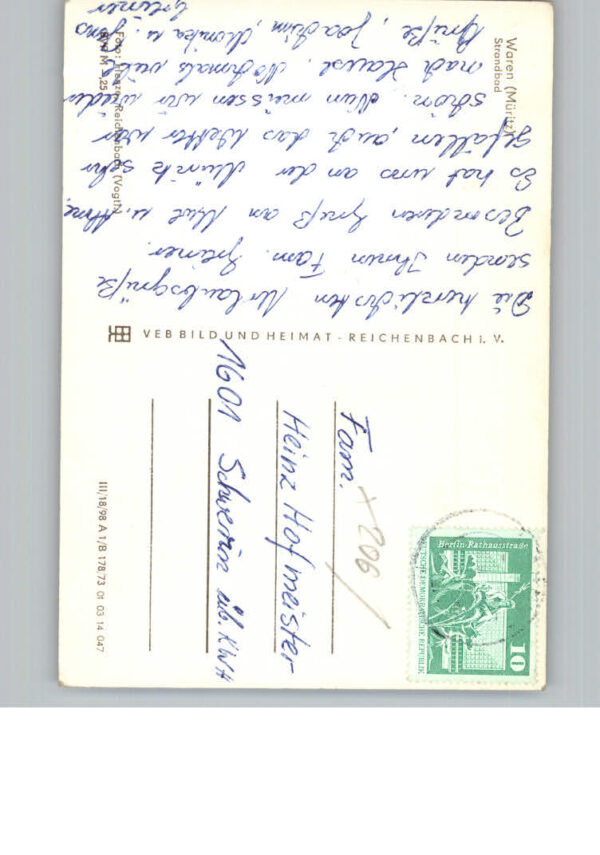 Waren (Müritz)
Strandbad
Die herzlichsten Urlaubsgrüße
senden Ihnen Fam. Greiner.
Besonderen Gruß an Mut u.
Es hat uns an der Müritz sehr
gefallen, auch das Wetter war
schön. Nun müssen wir wieder
nach Hause. Nochmals viele
Grüße, Joachim, Monika u. Jens
Greiner
Foto: Reichenbach (Vogtl.)
VEB BILD UND HEIMAT - REICHENBACH I. V.
Fam.
Heinz Hofmeister
1601 Schwerin üb. KWH
III/18/98 A 1/B 178/73 01 03 14 047
x 206/
Berlin-Rathausstraße
DEUTSCHE DEMOKRATISCHE REPUBLIK
10